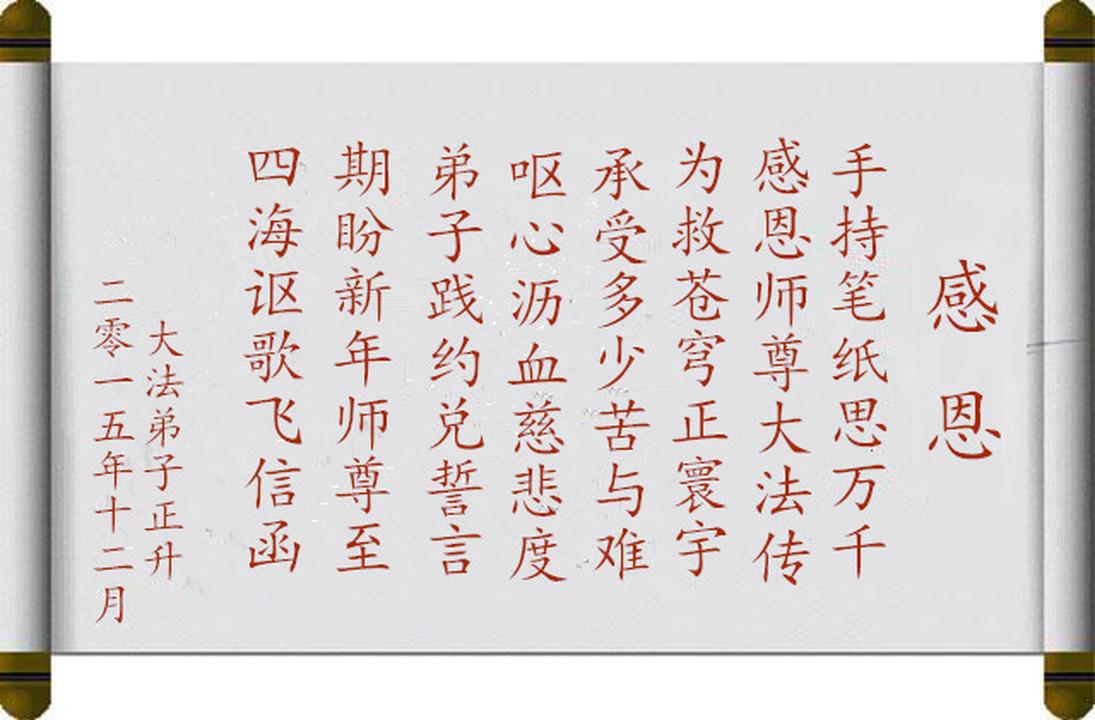 感恩
手持笔纸思万千
感恩师尊大法传
为救苍穹正寰宇
承受多少苦与难
呕心沥血慈悲度
弟子践约兑誓言
期盼新年师尊至
四海讴歌飞信函
大法弟子正升
二零一五年十二月